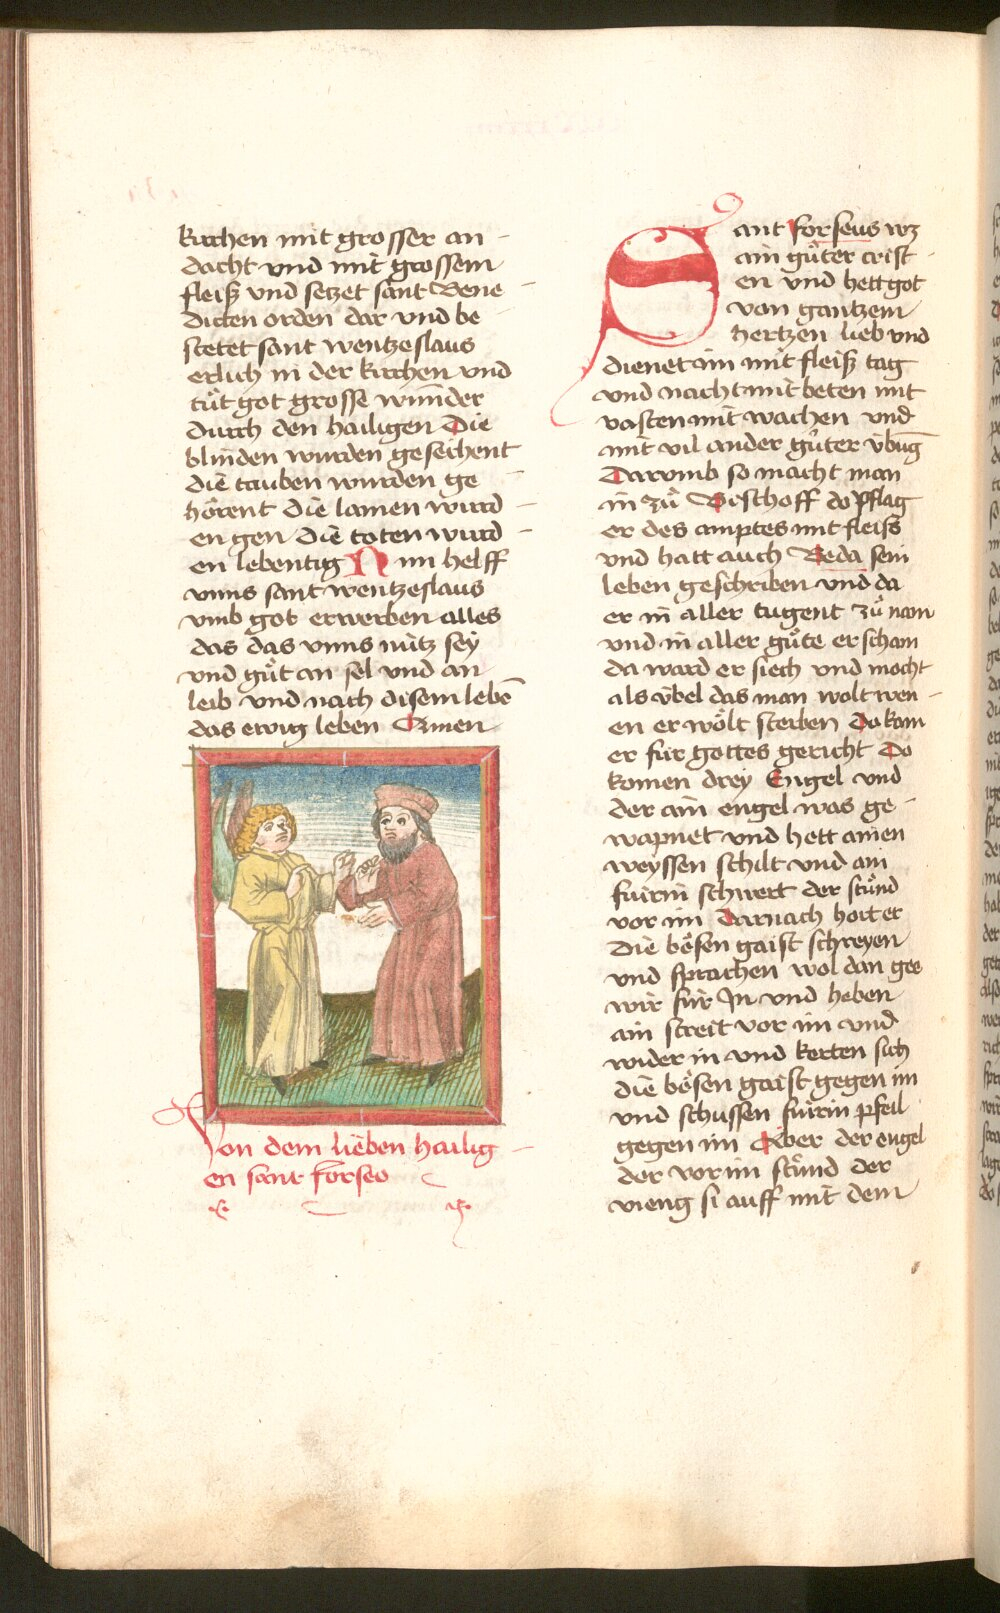 kirchen mit grosser an-
dacht und mit grossem
fleiß vnd setzet sant Bene-
dicten orden dar vnd be-
stetet sant wentzeslaus
erlich in der kirchen vnd
tůt got grosse wunder
durch den hailigen Die
blinden wurden gesechent
die tauben wurden ge-
hörent die lamen wurd-
en gen die toten wurd-
en lebentig Nun helff
vnns sant wentzeslaus
vmb got erwerben alles
das das vnns nütz sey
vnd gůt an sel vnd an
leib vnd nach disem lebē
das ewig leben Amen
Von dem lieben hailig-
en sant forseo
Sant forseus wz
ain gůter crist-
en vnd hett got
von gantzem
hertzen lieb vnd
dienet im mit fleiß tag
vnd nacht mit beten mit
vasten mit wachen vnd
mit vil ander gůter vbūg
Darvmb so macht man
in zů Bischoff do pflag
er des amptes mit fleiss
vnd hatt auch Beda sein
leben geschriben vnd da
er in aller tugent zů nam
vnd in aller gůte er scham
da ward er siech vnd mocht
als übel das man wolt wen-
en er wölt sterben Do kam
er für gottes gericht Do
komen drey Engel vnd
der ain engel was ge-
wapnet vnd hett ainen
weyssen schilt vnd ain
fuirin schwert der stůnd
vor im Darnach hort er
die bösen gaist schreyen
vnd sprachen wol dan gee
wir für In vnd heben
ain streit vor im vnd
wider in vnd kerten sich
die bösen gaist gegen im
vnd schussen fuirin pfeil
gegen im Aber der engel
der vor im stůnd der
vieng si auff mit dem